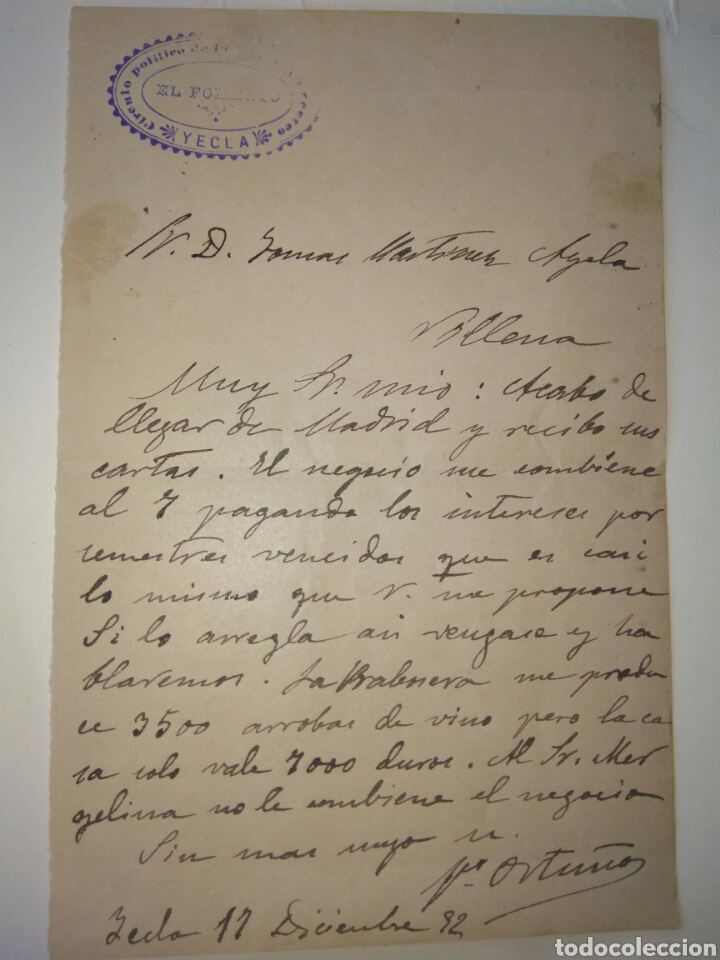 Circulo politico de
EL FO
YECLA
Sr. D. Tomas Martinez Ayela
Villena
Muy Sr. mio: Acabo de
llegar de Madrid y recibo sus
cartas. El negocio me combiene
al 7 pagando los intereses por
semestres vencidos que es casi
lo mismo que V. me propone
Si lo arregla asi vengase y ha
blaremos. La Rabosera me produ
ce 3500 arrobas de vino pero la ca
sa solo vale 7000 duros. Al Sr. Mer
gelina no le combiene el negocio
Sin mas suyo
Ortuño
Yecla 17 Diciembre 92
todocoleccion.net